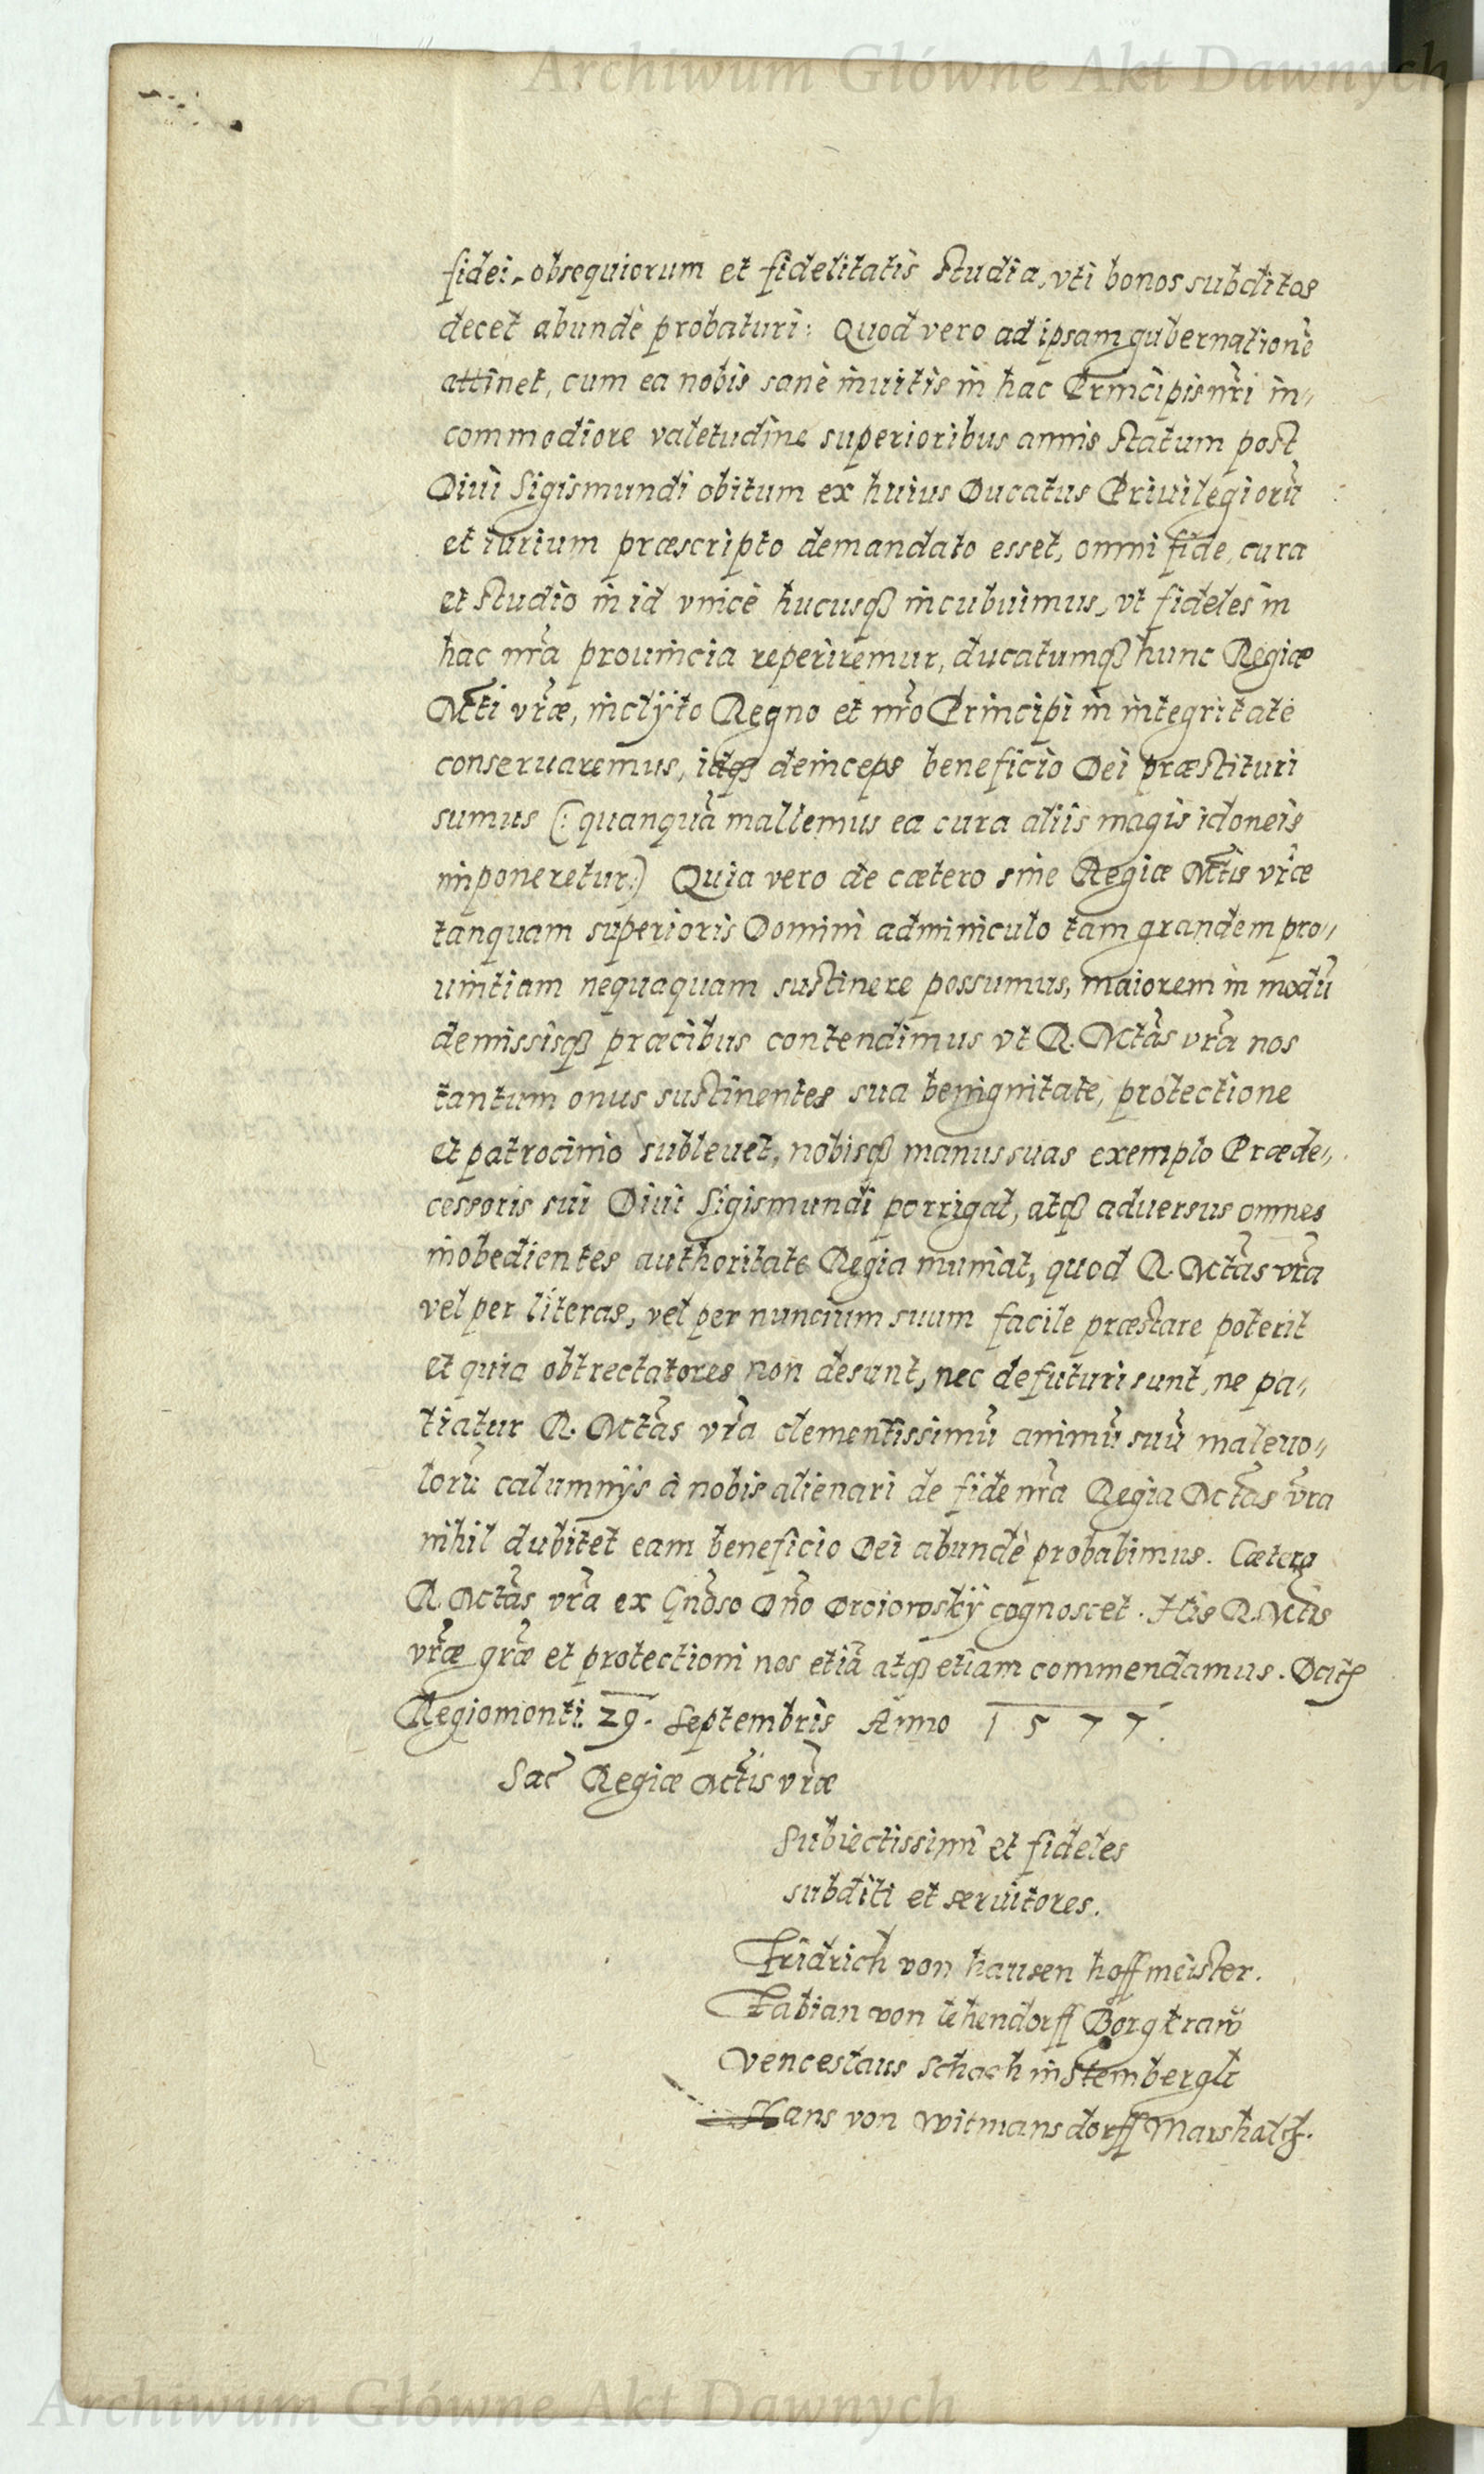 Archiwum Główne Akt Dawnych
fidei, obsequiorum et fidelitatis studia, vti bonos subditos
decet abundè probaturi: Quod vero ad ipsam gubernationē
attinet, cum ea nobis sanè inuitis in hac Principis nr̃i in„
commodiore valetudine superioribus annis statum post
Diui Sigismundi obitum ex huius Ducatus Priuilegiorū
et iurium præscripto demandato esset, omni fide, cura
et studio in id vnicè hucusq̃ incubuimus, vt fideles in
hac nr̃a prouincia reperiremur, ducatumq̃ hunc Regiæ
Mtti vr̃æ, inclÿto Regno et nr̃o Principi in integritate
conseruaremus, idq̃ deinceps beneficio Dei præstituri
sumus (: quanquā mallemus ea cura aliis magis idoneis
imponeretur:) Quia vero de cætero sine Regiæ Mttis vr̃æ
tanquam superioris Domini adminiculo tam grandem pro„
uintiam nequaquam sustinere possumus, maiorem in modū
demissisq̃ præcibus contendimus vt R. Mctãs vr̃a nos
tantum onus sustinentes sua benignitate, protectione
et patrocinio subleuet, nobisq̃ manus suas exemplo Præde„
cessoris sui Diui Sigismundi porrigat, atq̃ aduersus omnes
inobedientes authoritate Regia muniat, quod R. Mctãs vr̃a
vel per literas, vel per nuncium suum facile præstare poterit
et quia obtrectatores non desunt, nec defuturi sunt, ne pa„
tiatur R. Mctãs vr̃a clementissimū animū suū maleuo„
lorū calumnÿs à nobis alienari de fide nr̃a Regia Mctãs vr̃a
nihil dubitet eam beneficio Dei abundè probabimus. Cætera
R. Mctãs vr̃a ex Gn̄oso Dn̄o Droiowskÿ cognoscet. His R. Mttis
vr̃æ gr̃æ et protectioni nos etiā atq̃ etiam commendamus. Datę
Regiomonti. 29. Septembris Anno 1577.
Sac̃ Regiæ Mctis vr̃æ
Subiectissimi et fideles
subditi et seruitores.
Fridrich von hausen hoffmeister.
Fabian von lehendorff Borgkraw̆
Venceslaus Schach in Stembergk
Hans von Witmansdorff Marshalck.
Archiwum Główne Akt Dawnych